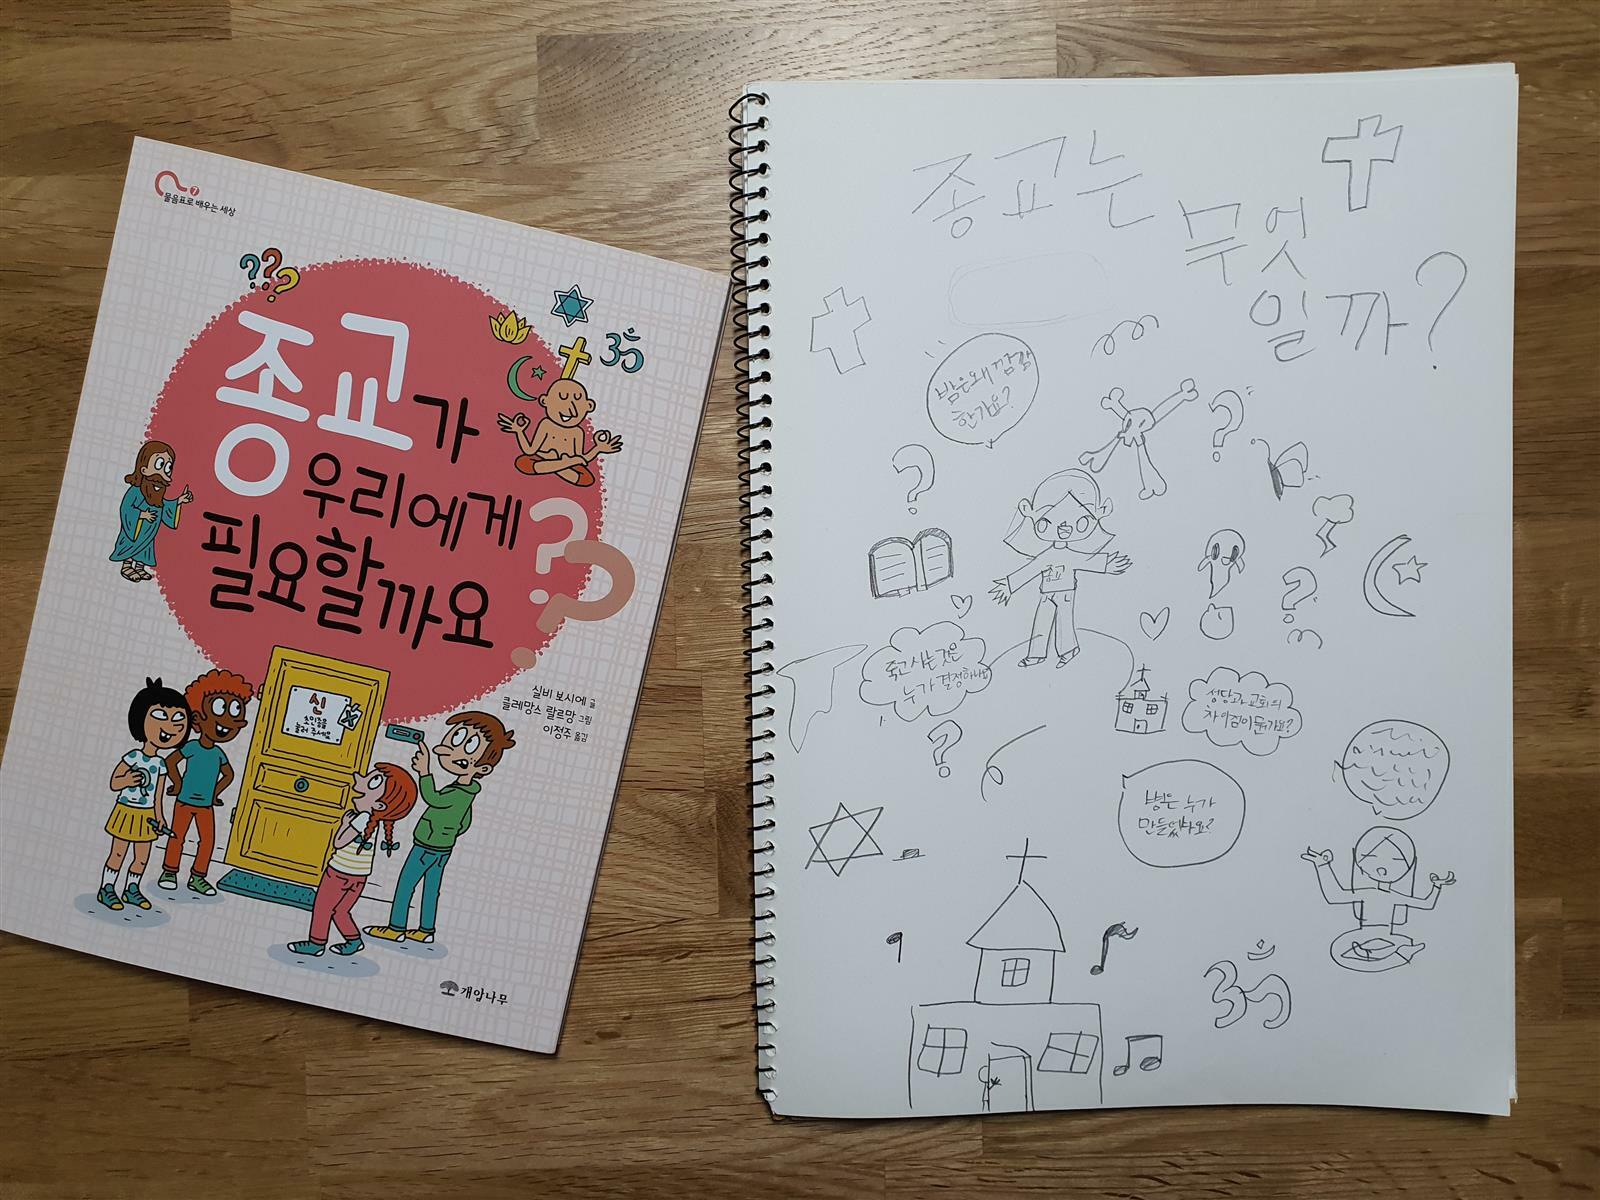 7
물음표로 배우는 세상
???
종교가
우리에게
필요할까요??
실비 보시에 글
클레망스 랄르망 그림
이정주 옮김
신
초인종을
눌러 주세요
개암나무
종교는
무엇
일까?
밤은 왜 깜깜
한가요?
?
?
종교
?
죽고 사는 것은
누가 결정하나요
성당과 교회의
차이점이 뭔가요?
?
병은 누가
만들었나요?